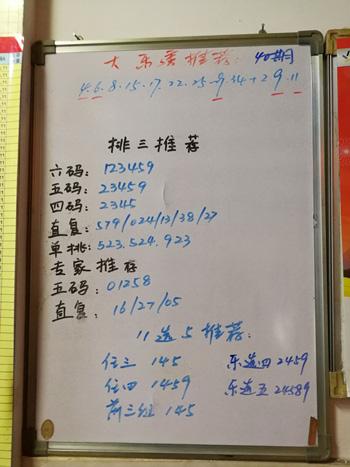 大乐透推荐: 40期
4.6.8.15.17.22.25.29.34+2 9.11
排三推荐
六码: 123459
五码: 23459
四码: 2345
直复: 579/024/13/38/27
单挑: 523.524.923
专家推荐
五码: 01258
直复: 16/27/05
11选5推荐:
任三 145 乐选四 2459
任四 1459 乐选五 24589
前三组 145